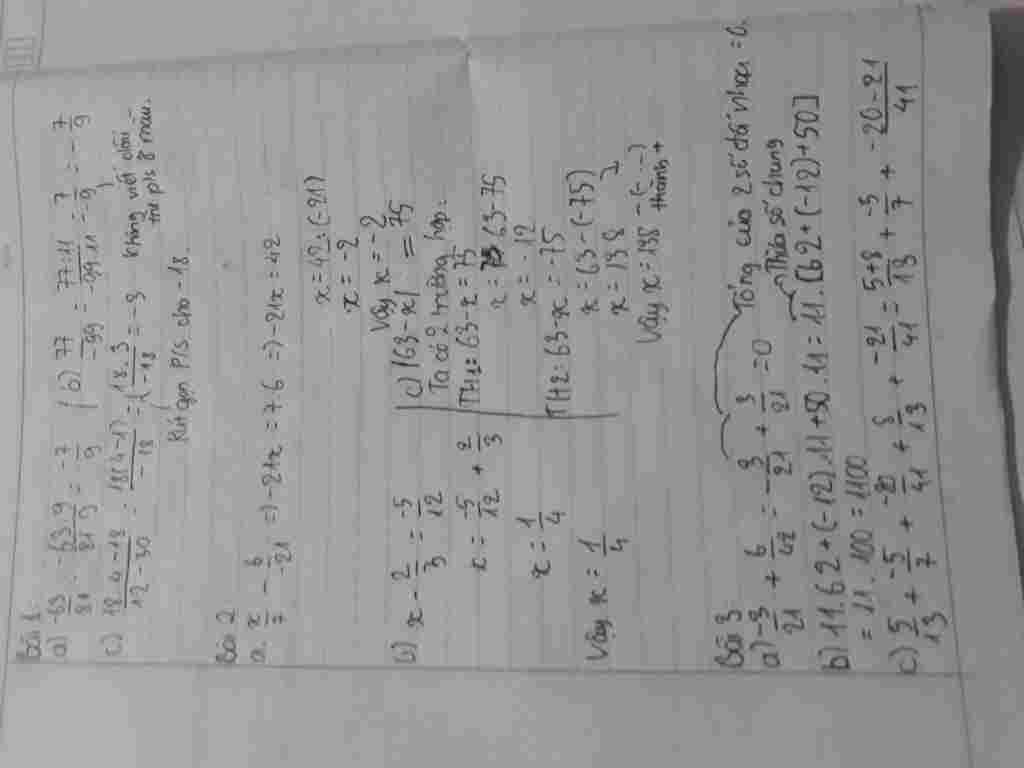 Bài 1.
a) -63/81 = -63:9/81:9 = -7/9 b) 77/-99 = 77:11/-99:11 = 7/-9 = -7/9
c) 18.4-18/12-30 = 18(4-1)/-18 = 18.3/-18 = -3 không viết dấu
Rút gọn P/s cho -18.
Bài 2
a. x/7 = 6/-21 => -21x = 7.6 => -21x = 42
x = 42:(-21)
x = -2
Vậy x = -2
b) x - 2/3 = -5/12
x = -5/12 + 2/3
x = 1/4
Vậy x = 1/4
c) |63-x| = 75
Ta có 2 trường hợp:
TH1: 63-x = 75
x = 63-75
x = -12
TH2: 63-x = -75
x = 63-(-75)
x = 138
Vậy x = 138 -(-)
thành +
Bài 3
a) -3/21 + 6/42 = -3/21 + 3/21 = 0 Tổng của 2 số đối nhau = 0.
Thừa số chung
b) 11.62+(-12).11+50.11 = 11.[62+(-12)+50]
= 11.100 = 1100
c) 5/13 + -5/7 + -20/41 + 8/13 + -21/41 = 5+8/13 + -5/7 + -20-21/41